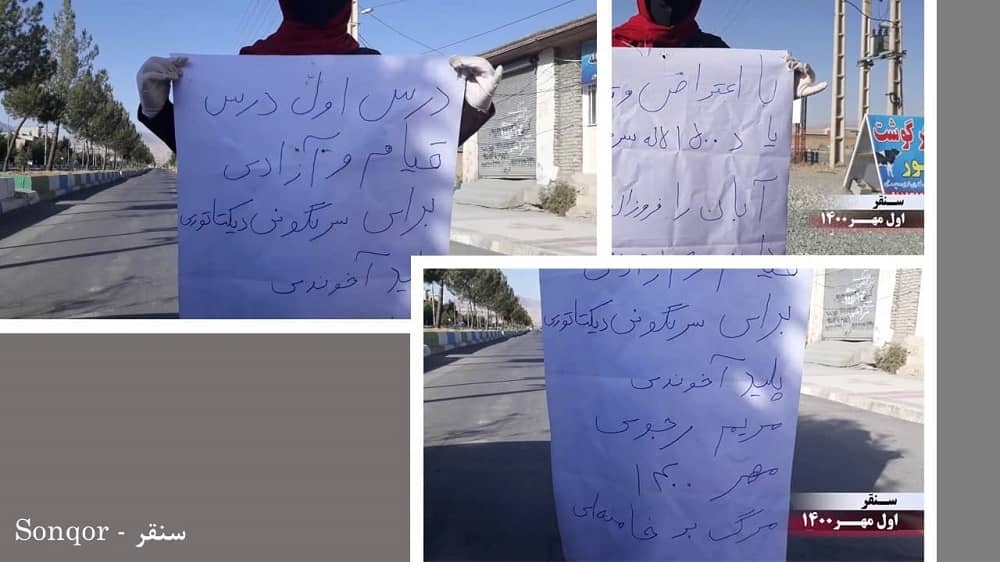 درس اول درس
قیام و آزادی
برای سرنگونی دیکتاتوری
پلید آخوندی
با اعتراض و
یاد ۱۵۰۰ لاله سر
آبان را فروزان
گوشت
سنقر
اول مهر ۱۴۰۰
قیام و آزادی
برای سرنگونی دیکتاتوری
پلید آخوندی
مریم رجوی
مهر ۱۴۰۰
مرگ بر خامنه‌ای
سنقر
اول مهر ۱۴۰۰
Sonqor - سنقر